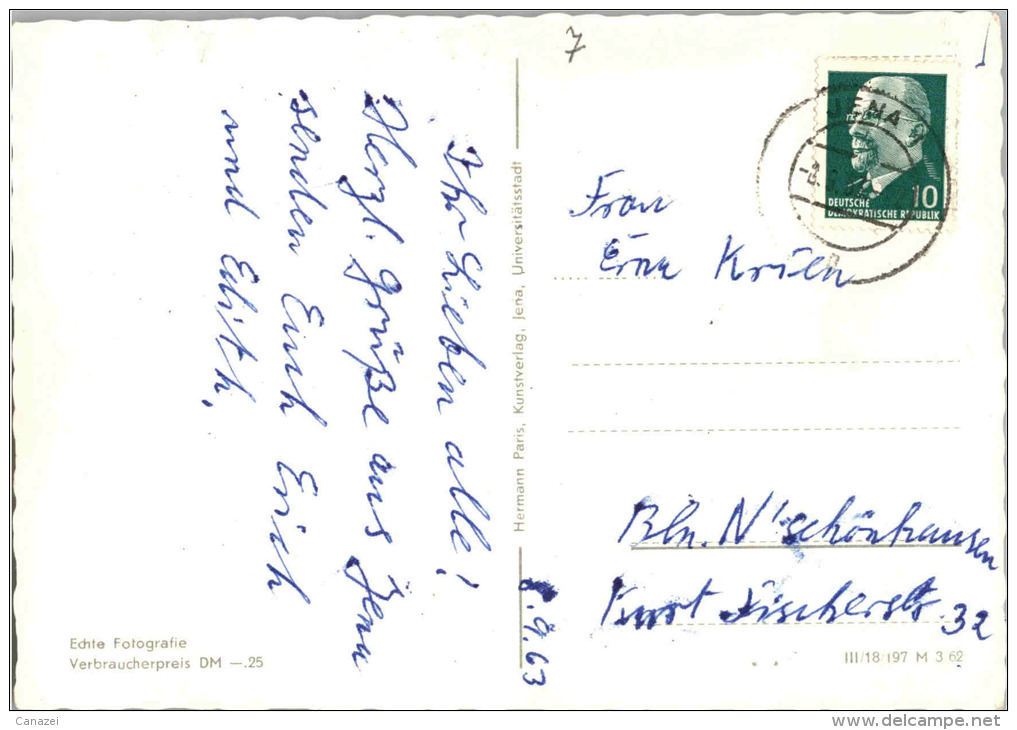 Ihr Lieben alle!
Herzl. Grüße aus Jena
senden Euch Erich
und Edith.
Echte Fotografie
Verbraucherpreis DM —.25
Hermann Paris, Kunstverlag, Jena, Universitätsstadt
8.9.63
7
JENA
10
DEUTSCHE
DEMOKRATISCHE REPUBLIK
Frau
Erna
Bln. N'schönhausen
Kurt Fischerstr. 32
III/18/197 M 3 62
Canazei
www.delcampe.net